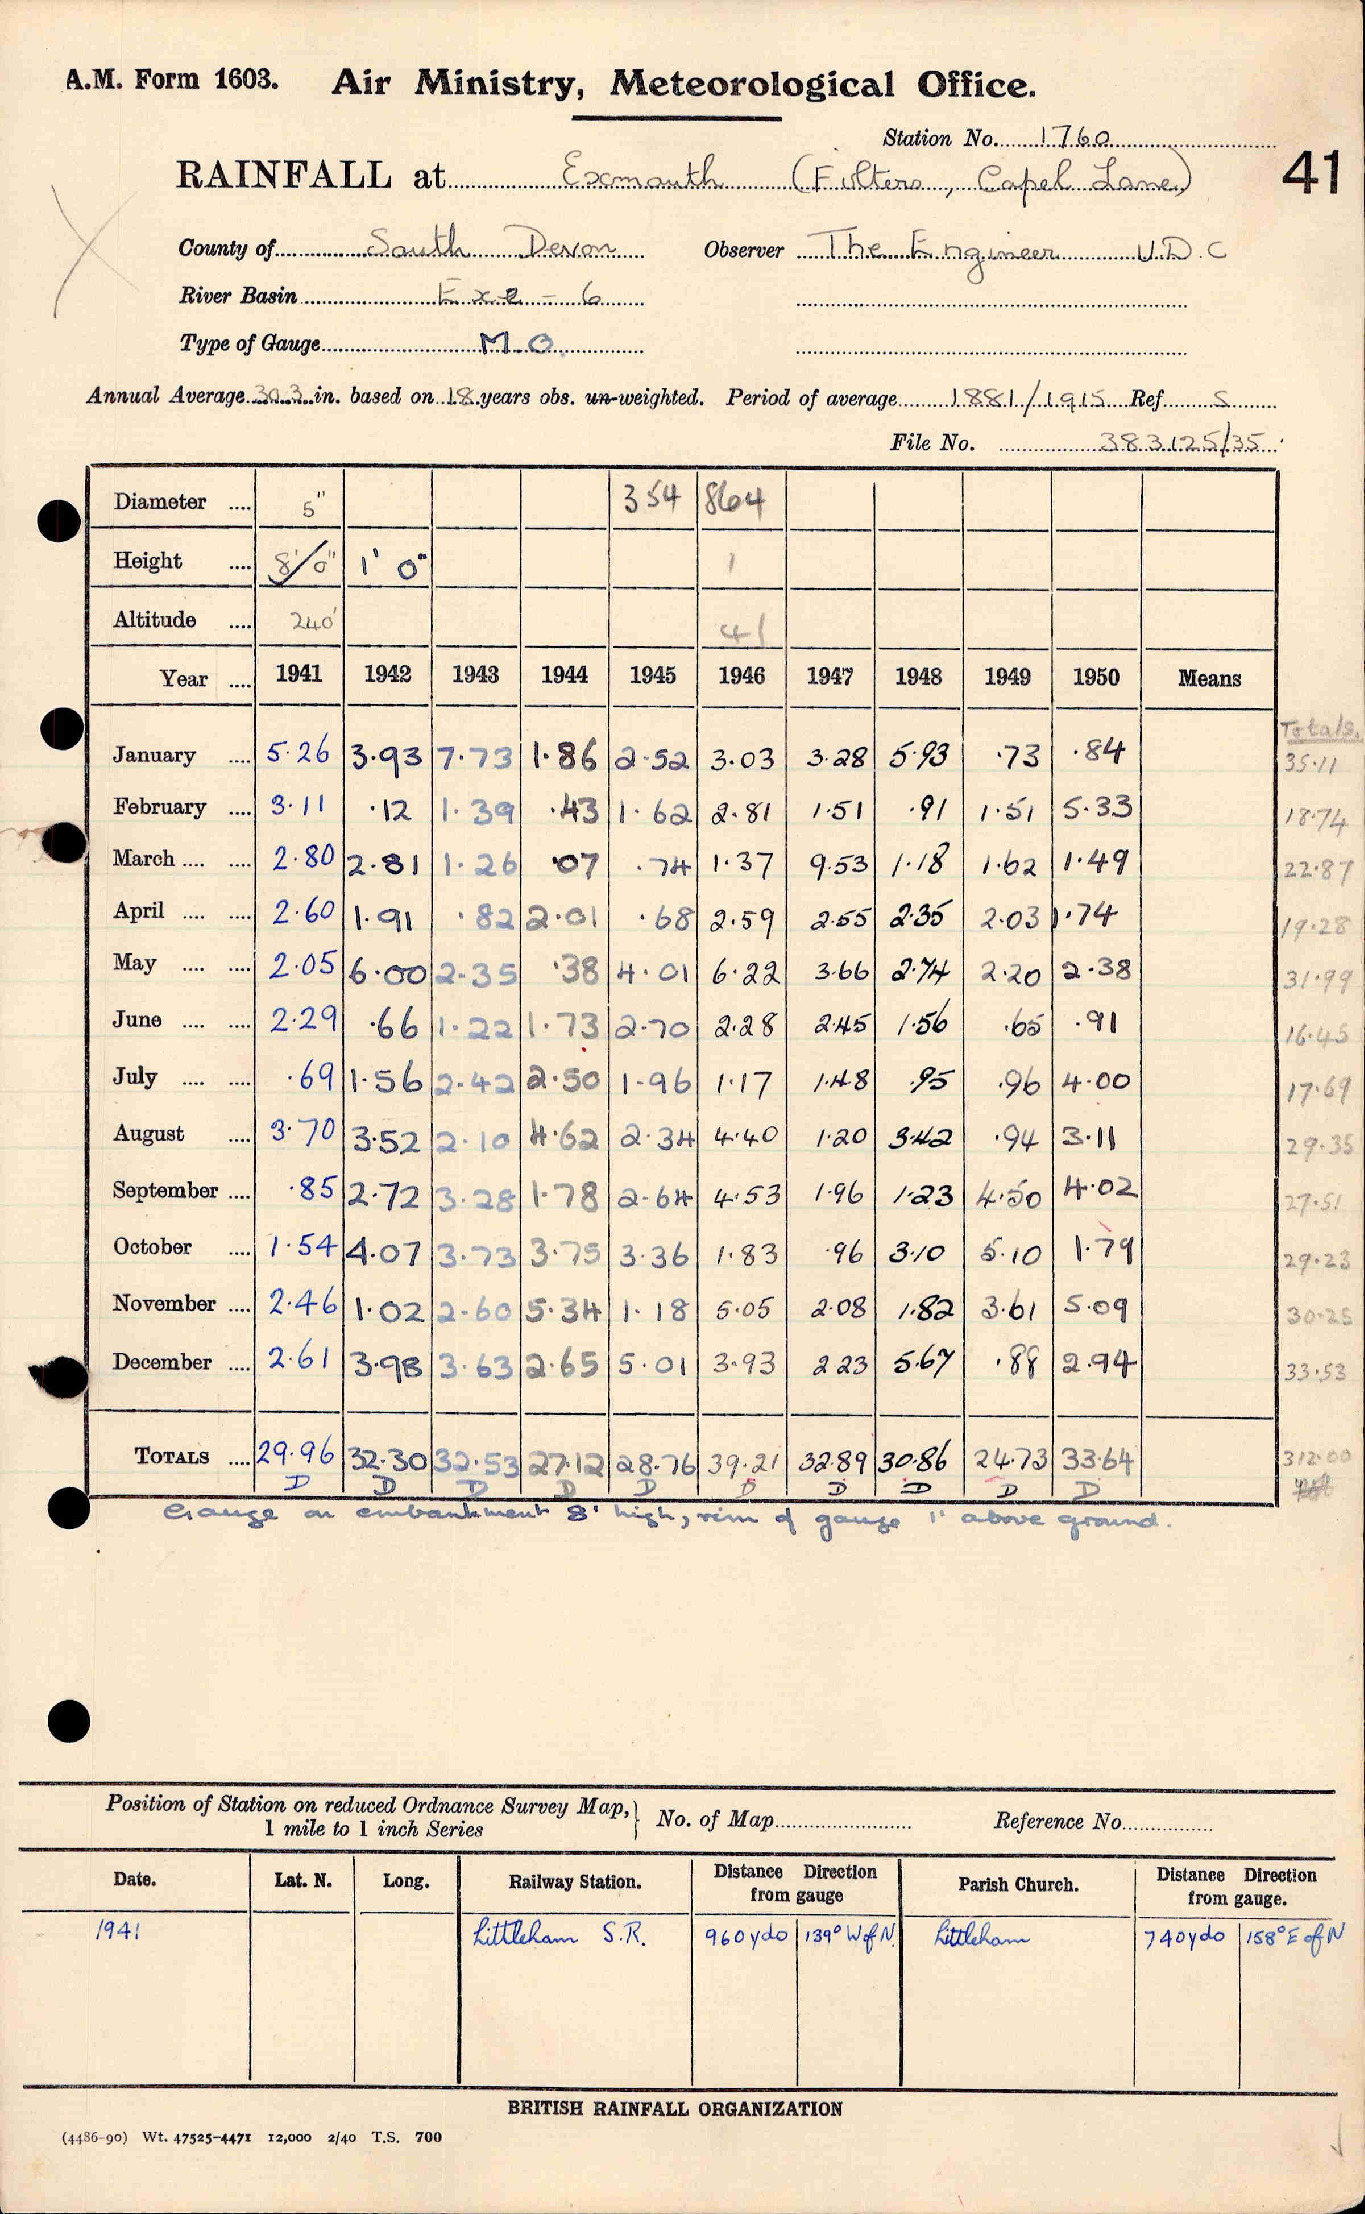 A.M. Form 1603. Air Ministry, Meteorological Office.
Station No. 1760
41
RAINFALL at Exmouth (Filters, Capel Lane)
County of South Devon Observer The Engineer U.D.C
River Basin Exe - 6
Type of Gauge M.O.
Annual Average 30.3 in. based on 18 years obs. un-weighted. Period of average 1881/1915 Ref. S
File No. 383125/35
Diameter .... 5" 354 864
Height .... 8'/0" 1' 0" 1
Altitude .... 240' 41
Year .... 1941 1942 1943 1944 1945 1946 1947 1948 1949 1950 Means
Totals.
January .... 5.26 3.93 7.73 1.86 2.52 3.03 3.28 5.93 .73 .84 35.11
February .... 3.11 .12 1.39 .43 1.62 2.81 1.51 .91 1.51 5.33 18.74
March .... .... 2.80 2.81 1.26 .07 .74 1.37 9.53 1.18 1.62 1.49 22.87
April .... .... 2.60 1.91 .82 2.01 .68 2.59 2.55 2.35 2.03 1.74 19.28
May .... .... 2.05 6.00 2.35 .38 4.01 6.22 3.66 2.74 2.20 2.38 31.99
June .... .... 2.29 .66 1.22 1.73 2.70 2.28 2.45 1.56 .65 .91 16.45
July .... .... .69 1.56 2.42 2.50 1.96 1.17 1.48 .95 .96 4.00 17.69
August .... 3.70 3.52 2.10 4.62 2.34 4.40 1.20 3.42 .94 3.11 29.35
September .... .85 2.72 3.28 1.78 2.64 4.53 1.96 1.23 4.50 4.02 27.51
October .... 1.54 4.07 3.73 3.75 3.36 1.83 .96 3.10 5.10 1.79 29.23
November .... 2.46 1.02 2.60 5.34 1.18 5.05 2.08 1.82 3.61 5.09 30.25
December .... 2.61 3.98 3.63 2.65 5.01 3.93 2.23 5.67 .88 2.94 33.53
TOTALS .... 29.96 32.30 32.53 27.12 28.76 39.21 32.89 30.86 24.73 33.64 312.00
D D D D D D D D D D
Gauge on embankment 8' high, rim of gauge 1' above ground.
Position of Station on reduced Ordnance Survey Map, } No. of Map Reference No.
1 mile to 1 inch Series
Date. Lat. N. Long. Railway Station. Distance Direction from gauge Parish Church. Distance Direction from gauge.
1941 Littleham S.R. 960 yds 139° W of N. Littleham 740 yds 158° E of N
BRITISH RAINFALL ORGANIZATION
(4486-90) Wt. 47525-4471 12,000 2/40 T.S. 700